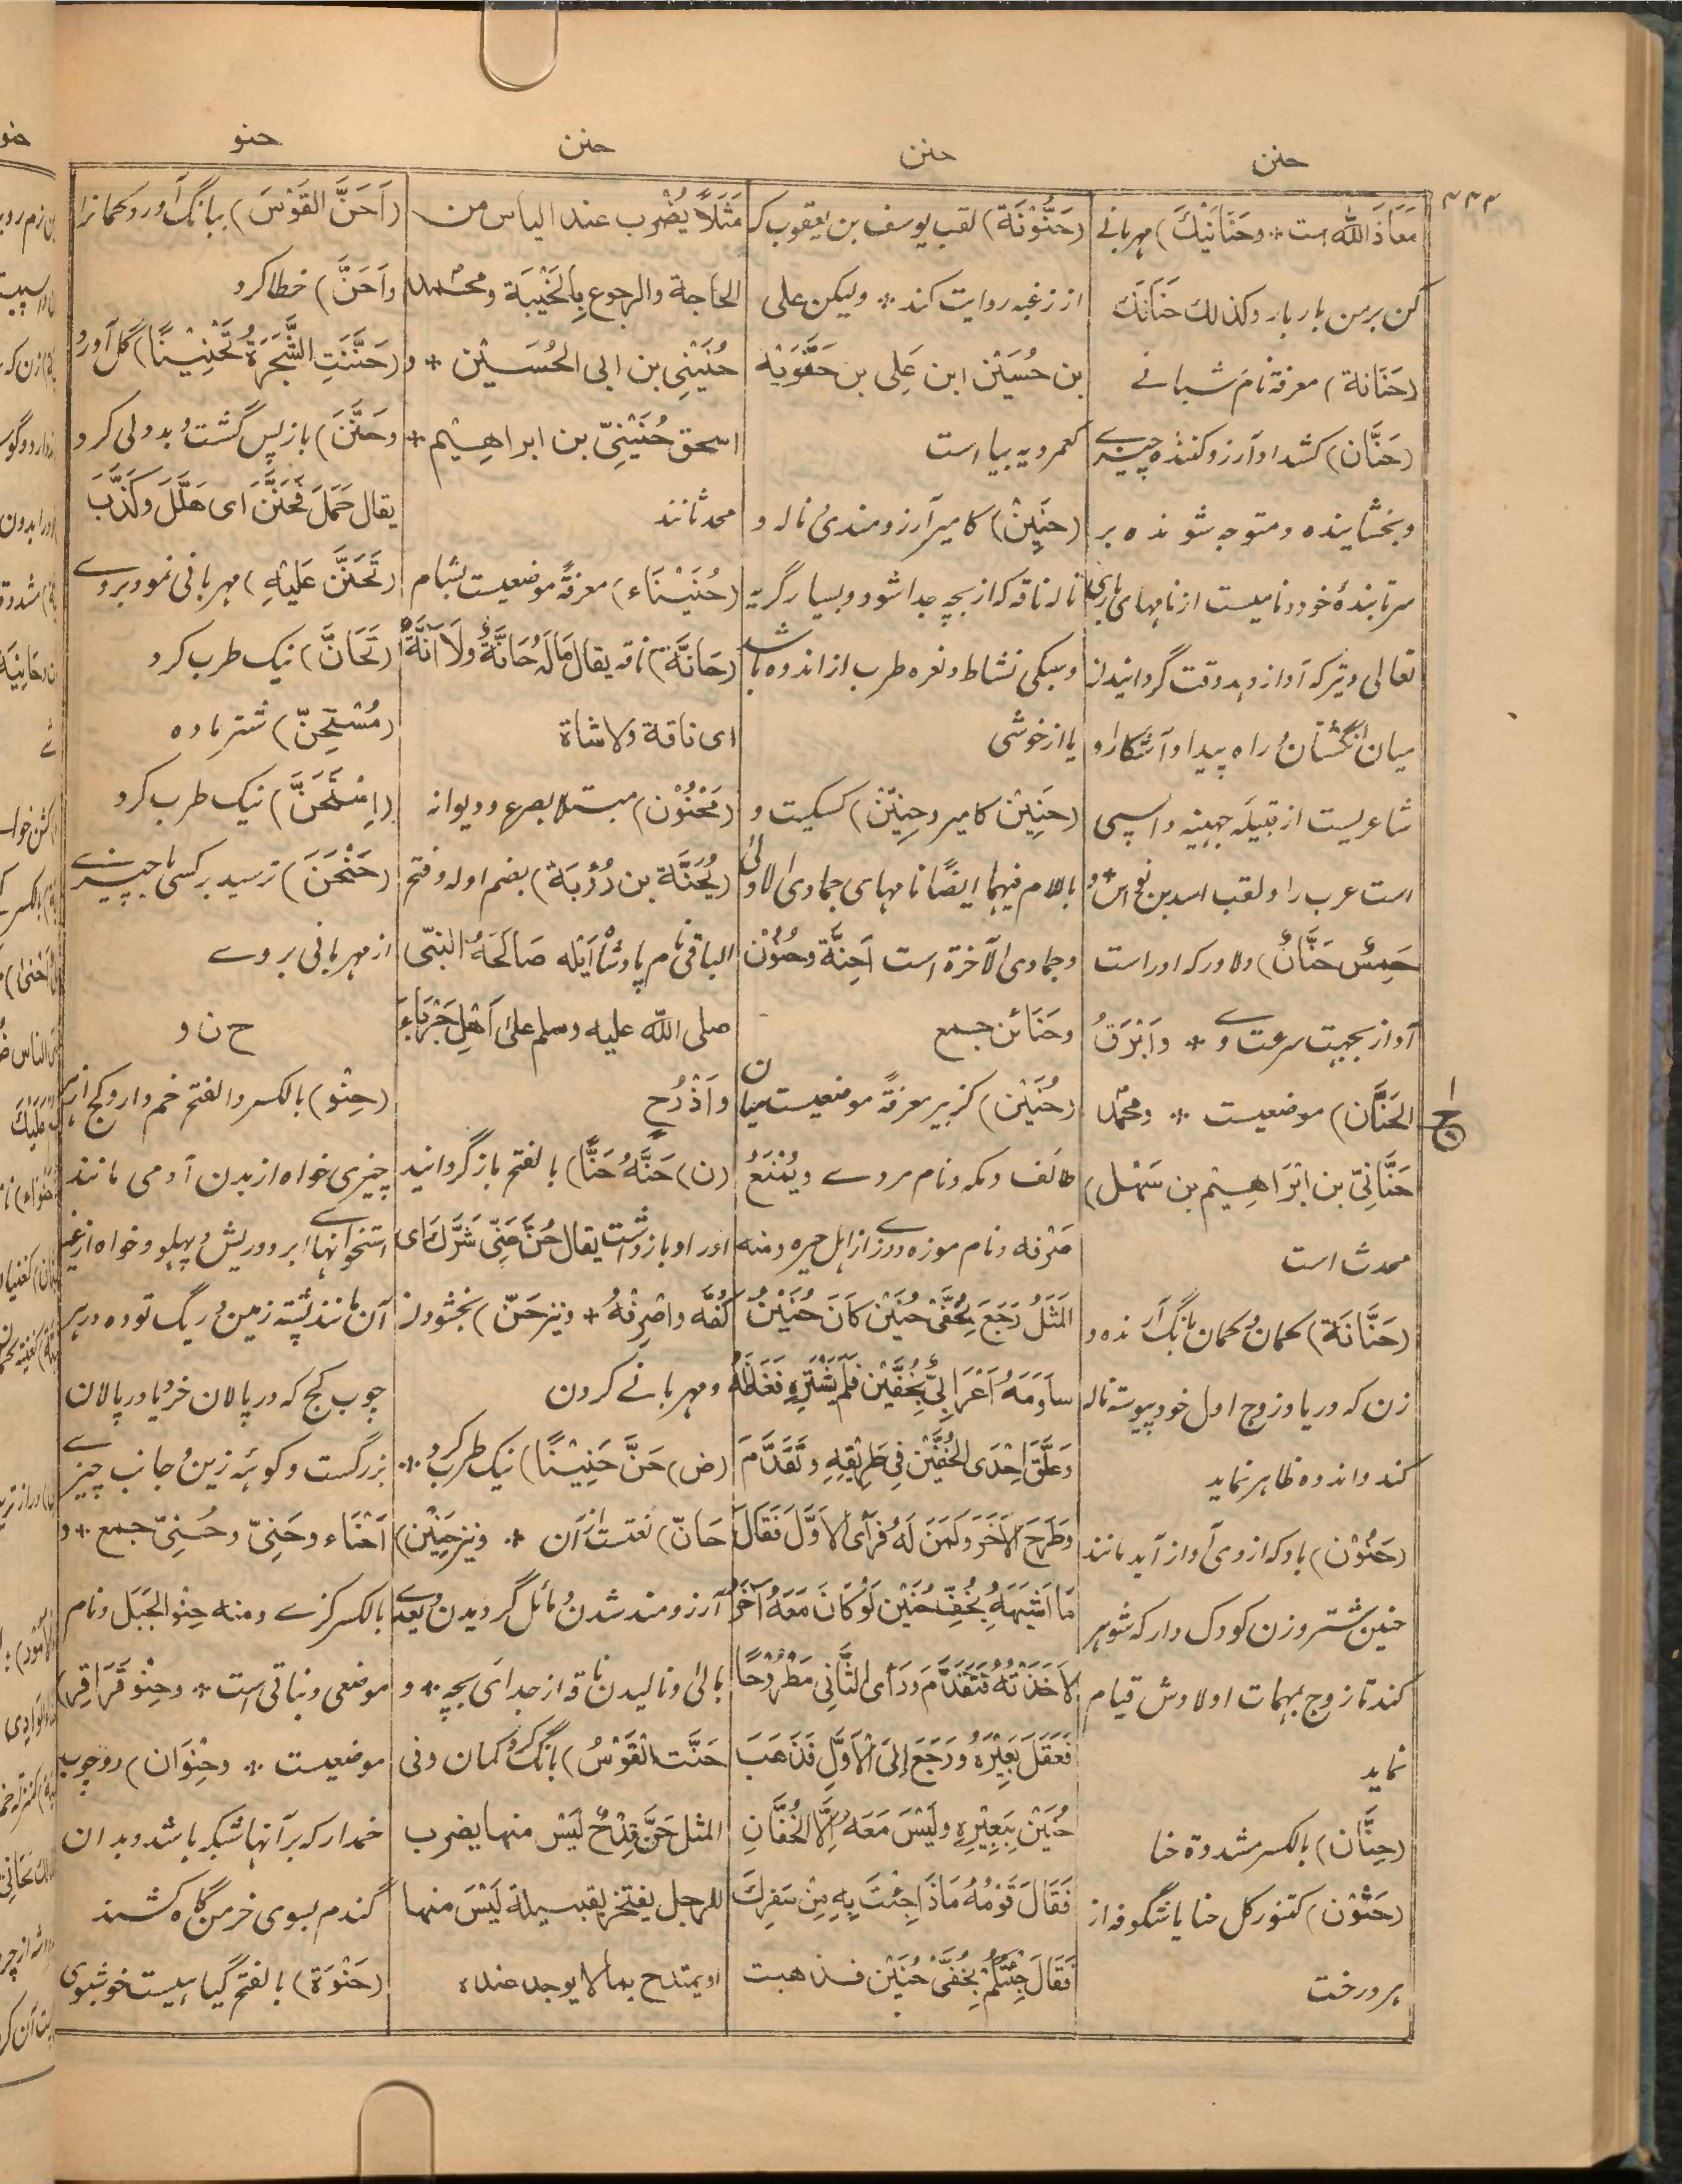 حنن
حنن
حنن
حنو
۳۳۴
مَعَاذَ اللهُ است * وحَنَانَیْكَ) مهربانے
کن برمن بار بار وکذلك حَنَانَكَ
(حَنَانة) معرفة نام شبانے
(حَنَّان) کشداو آرزو کننده چیزے
وبخشاینده ومتوجه شونده بر
سرتابندهٔ خود ونامیست از نامهای باری
تعالی وتیرکه آواز دهد وقت گردانیدن
میان انگشتان وراه پیدا وآشکارا و
شاعریست از قبیله جهینه واسپی
است عرب را ولقب اسد بن نواس * و
خِمْسٌ حَنَّانٌ) ولاورکه اوراست
آواز بجهت سرعت وے * واَبْرَقُ
الحَنَّان) موضعیست * ومحمّد
حَنَّانِیّ بن ابْرَاهِیْم بن سَهْل)
محدث است
(حَنَّانَة) کمان وکمان بانگ آرنده و
زن که دریاد زوج اول خود پیوسته ناله
کند واندوه ظاهر نماید
(حَنُوْن) بادکه ازوی آواز آید مانند
حنین شتر وزن کودک دار که شوهر
کند تا زوج بمهمات اولادش قیام
نماید
(حِنَّان) بالکسر مشددة حنا
(حَنُّوْن) کتنور گل حنا یا شگوفه از
هر درخت
(حَنُّوْنَة) لقب یوسف بن یعقوب که
از زغبه روایت کند * ولیکن علی
بن حُسَیْن ابن عَلِی بن حَنُّوَیْه
کعمرویه بیا است
(حَنِیْن) کامیر آرزومندی و ناله و
ناله ناقه که از بچه جدا شود وبسیار گریه
وسبکی نشاط ونعره طرب از اندوه باشد
یا از خوشی
(حَنِیْن کامیر وحِنِّیْن) کسکیت و
باللام فیهما ایضًا نامهای جمادی الاولی
وجمادی الآخرة است اَحِنَّة وحُنُوْن
وحَنَائن جمع
(حُنَیْن) کزبیر معرفةً موضعیست میان
طائف ومکه ونام مردے ویُمْنَعُ
صَرْفه ونام موزه دوزے از اهل حیره ومنه
المَثَلُ رَجَعَ بِخُفَّیْ حُنَیْن کَانَ حُنَیْنٌ
ساوَمَهُ اَعْرَابِیٌّ بِخُفَّیْن فَلَمْ یَشْتَرِهِ فَغَاظَهُ
وَعَلَّقَ اِحْدَی الخُفَّیْن فِی طَرِیْقِهِ وتَقَدَّمَ
وَطَرَحَ الآخَرَ وکَمَنَ لَهُ فَرَأی الاَوَّلَ فَقَالَ
مَا اَشْبَهَهُ بِخُفِّ حُنَیْن لَوْ کَانَ مَعَهُ آخَرُ
لاَخَذْتُهُ فَتَقَدَّمَ وَرَأی الثَّانِی مَطْرُوْحًا
فَعَقَلَ بَعِیْرَهُ ورَجَعَ اِلَی الْاَوَّلِ فَذَهَبَ
حُنَیْن بِبَعِیْرِهِ ولَیْسَ مَعَهُ اِلَّا الخُفَّانِ
فَقَالَ قَوْمُهُ مَاذَا جِئْتَ بِهِ مِنْ سَفَرِكَ
فَقَالَ جِئْتُکُمْ بِخُفَّیْ حُنَیْن فذهبت
مَثَلًا یُضْرب عند الیاس من
الحاجة والرجوع بِالخَیْبَة ومحمّد
حُنَیْنِی بن ابی الحُسَیْن * و
اسحق حُنَیْنِیّ بن ابراهِیْم *
محدثانند
(حُنَیْنَاء) معرفةً موضعیست بشام
(حَانَّة) ناقه یقال مَا لَهُ حَانَّةٌ ولَا آنَّةٌ
ای ناقة ولا شاة
(مَحْنُوْن) مبتلا بصرع ودیوانه
(یُحَنَّة بن رُؤْبَة) بضم اوله وفتح
الباقی نام پادشاه اَیْله صَالَحَهُ النبّی
صلی الله علیه وسلم علی اَهْل جَرْبَاءَ
واَذْرُح
(ن) حَنَّهُ حَنًّا) بالفتح بازگردانید
اورا وبازداشت یقال حُنَّ عَنِّی شَرَّكَ ای
کُفَّه واصْرِفْهُ * ونیز حَنّ) بخشودن
ومهربانے کردن
(ض) حَنَّ حَنِیْنًا) نیک طرب کرد *
حَانّ) نعتست ازان * ونیز حَنِیْن)
آرزومند شدن ومائل گردیدن بعدے
بالی ونالیدن ناقه از جدائی بچه * و
حَنَّت القَوْسُ) بانگ کرد کمان وفی
المثل حَنَّ قِدْحٌ لَیْسَ منها یضرب
للرجل یفتخر بقبیلة لَیْسَ منها
او یمتدح بما لا یوجد عنده
(اَحَنَّ القَوْسَ) ببانگ آورد کمان را
واَحَنَّ) خطا کرد
(حَنَّنَتِ الشَّجَرَةُ تَحْنِیْنًا) گل آورد
وحَنَّنَ) بازپس گشت وبددلی کرد
یقال حَمَلَ فَحَنَّنَ ای هَلَّلَ وکَذَّبَ
(تَحَنَّنَ عَلَیْهِ) مهربانی نمود بروے
(تَحَانَّ) نیک طرب کرد
(مُسْتَحِنّ) شتر ماده
(اِسْتَحَنَّ) نیک طرب کرد
(حَنْحَنَ) ترسید بر کسی یا چیزے
از مهربانی بروے
ح ن و
(حِنْو) بالکسر والفتح خم دار وکج از هر
چیزی خواه از بدن آدمی مانند
استخوانهاے ابرو وریش وپهلو وخواه از غیر
آن مانند پشته زمین وریگ توده وهر
چوب کج که در پالان خرد یا در پالان
بزرگست وکوهۀ زین وجانب چیزے
اَحْنَاء وحَنِیّ وحُنِیّ جمع * و
بالکسر کژے ومنه حِنْوُ الجَبَل ونام
موضعی ونباتی است * وحِنْو قُرَاقِر)
موضعیست * وحِنْوَان) دو چوب
خمدار که بر آنها شبکه باشد وبدان
گندم بسوی خرمن گاه کشند
(حَنْوَة) بالفتح گیاهیست خوشبوی